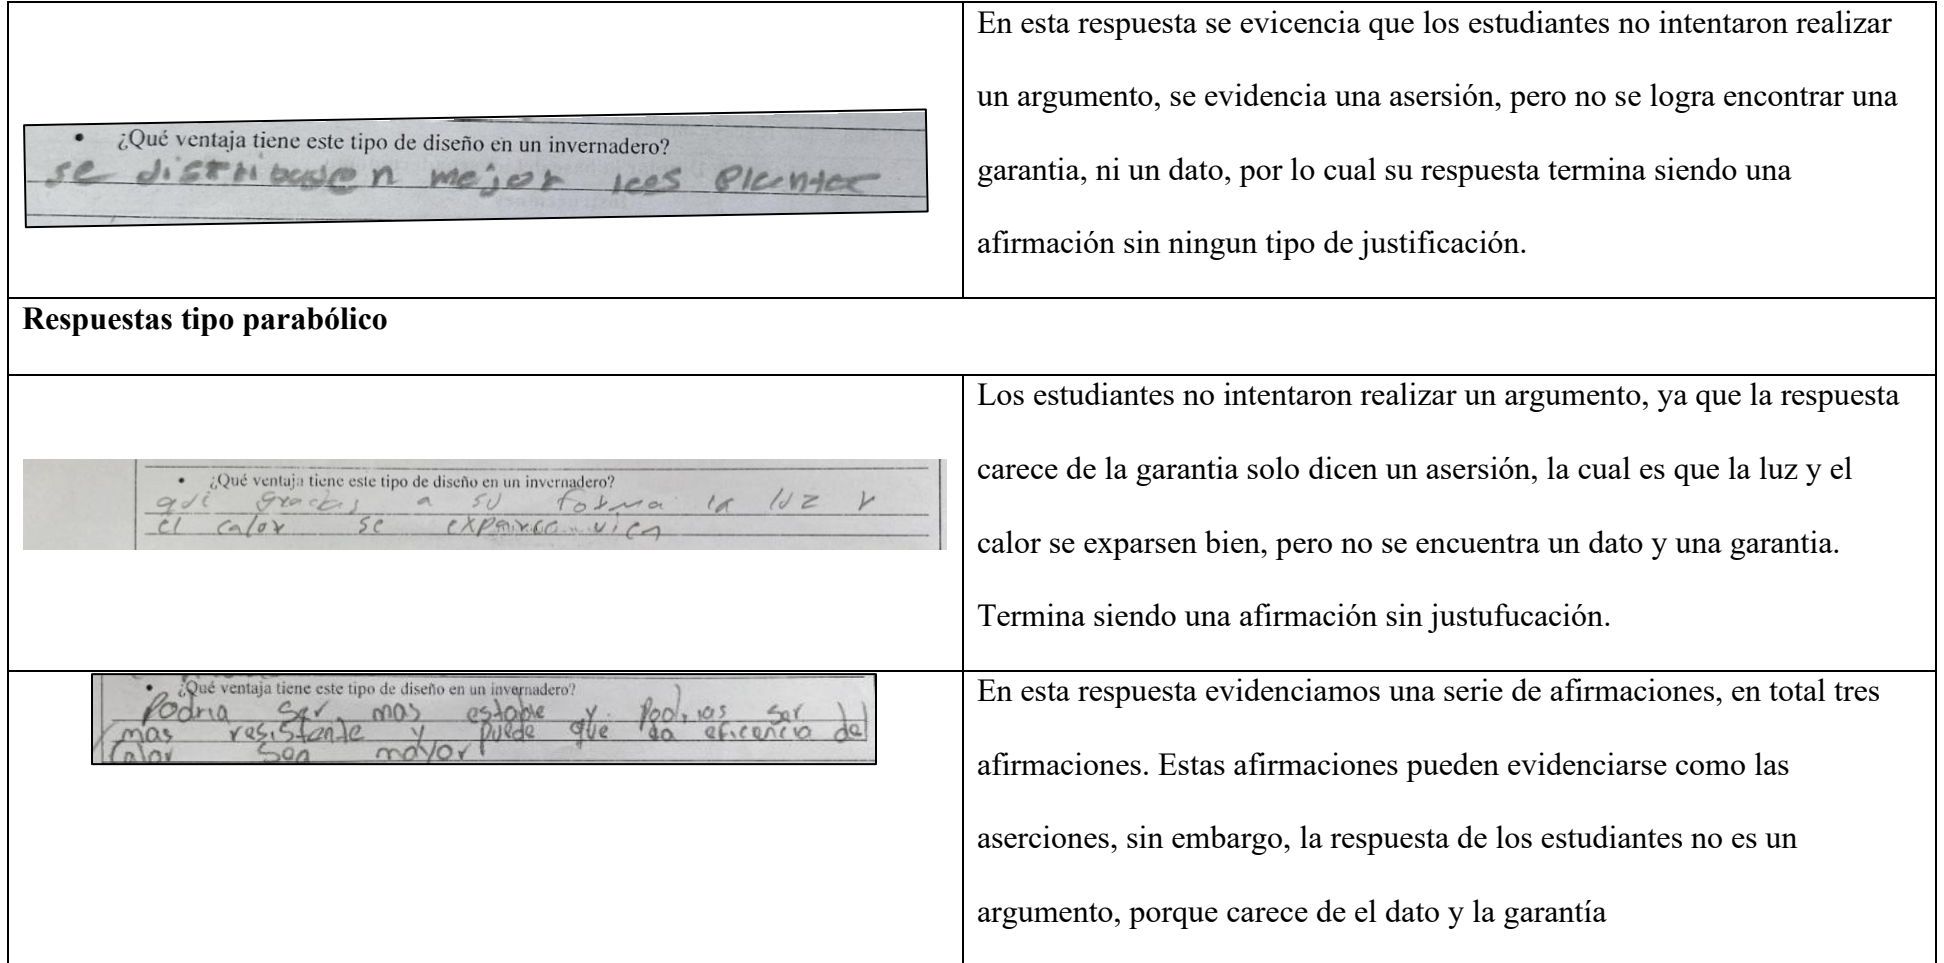 • ¿Qué ventaja tiene este tipo de diseño en un invernadero?
se distribuyen mejor las plantas
En esta respuesta se evicencia que los estudiantes no intentaron realizar
un argumento, se evidencia una asersión, pero no se logra encontrar una
garantia, ni un dato, por lo cual su respuesta termina siendo una
afirmación sin ningun tipo de justificación.
Respuestas tipo parabólico
• ¿Qué ventaja tiene este tipo de diseño en un invernadero?
que gracias a su forma la luz y
el calor se vien
Los estudiantes no intentaron realizar un argumento, ya que la respuesta
carece de la garantia solo dicen un asersión, la cual es que la luz y el
calor se exparsen bien, pero no se encuentra un dato y una garantia.
Termina siendo una afirmación sin justufucación.
• ¿Qué ventaja tiene este tipo de diseño en un invernadero?
Podria ser mas estable y ser
mas resistente y puede que la eficencia del
Calor sea mayor
En esta respuesta evidenciamos una serie de afirmaciones, en total tres
afirmaciones. Estas afirmaciones pueden evidenciarse como las
aserciones, sin embargo, la respuesta de los estudiantes no es un
argumento, porque carece de el dato y la garantía